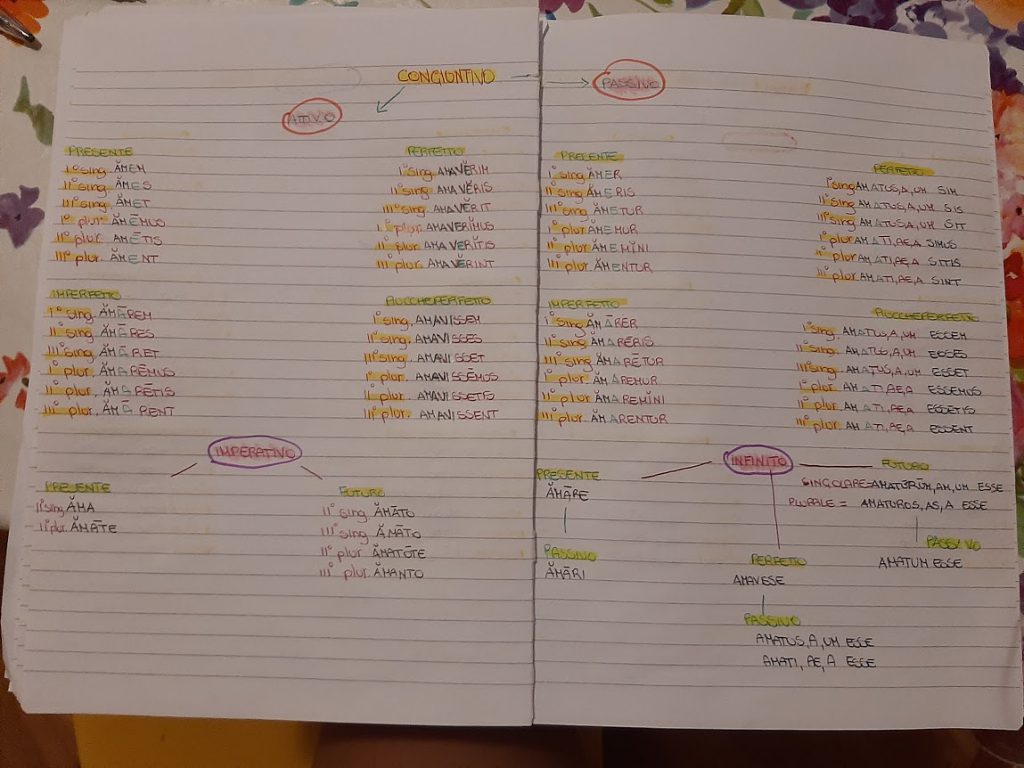 CONGIUNTIVO
ATTIVO
PRESENTE
I° sing. ĂMEM
II° sing. ĂMES
III° sing. ĂMET
I° plur. ĂMĒMUS
II° plur. ĂMĒTIS
III° plur. ĂMENT
PERFETTO
I° sing. AMAVĔRIM
II° sing. AMAVĔRIS
III° sing. AMAVĔRIT
I° plur. AMAVERĬMUS
II° plur. AMAVERĬTIS
III° plur. AMAVĔRINT
IMPERFETTO
I° sing. ĂMĀREM
II° sing. ĂMĀRES
III° sing. ĂMĀRET
I° plur. ĂMARĒMUS
II° plur. ĂMARĒTIS
III° plur. ĂMĀRENT
PIUCCHEPERFETTO
I° sing. AMAVISSEM
II° sing. AMAVISSES
III° sing. AMAVISSET
I° plur. AMAVISSĒMUS
II° plur. AMAVISSETIS
III° plur. AMAVISSENT
IMPERATIVO
PRESENTE
II° sing. ĂMA
II° plur. ĂMĀTE
FUTURO
II° sing. ĂMĀTO
III° sing. ĂMĀTO
II° plur. ĂMATŌTE
III° plur. ĂMANTO
PASSIVO
PRESENTE
I° sing. ĂMER
II° sing. ĂMERIS
III° sing. ĂMETUR
I° plur. ĂMEMUR
II° plur. ĂMEMĬNI
III° plur. ĂMENTUR
PERFETTO
I° sing AMATUS,A,UM SIM
II° sing AMATUS,A,UM SIS
III° sing AMATUS,A,UM SIT
I° plur AMATI,AE,A SIMUS
II° plur AMATI,AE,A SITIS
III° plur AMATI,AE,A SINT
IMPERFETTO
I° sing ĂMĀRER
II° sing ĂMARERIS
III° sing ĂMARĒTUR
I° plur. ĂMAREMUR
II° plur. ĂMAREMĬNI
III° plur. ĂMARENTUR
PIUCCHEPERFETTO
I° sing. AMATUS,A,UM ESSEM
II° sing. AMATUS,A,UM ESSES
III° sing. AMATUS,A,UM ESSET
I° plur. AMATI,AE,A ESSEMUS
II° plur. AMATI,AE,A ESSETIS
III° plur. AMATI,AE,A ESSENT
INFINITO
PRESENTE
ĂMĀRE
PASSIVO
ĂMĀRI
PERFETTO
AMAVESE
PASSIVO
AMATUS,A,UM ESSE
AMATI, AE, A ESSE
FUTURO
SINGOLARE=AMATURŪM,AM,UM ESSE
PLURALE = AMATUROS,AS,A ESSE
PASSIVO
AMATUM ESSE